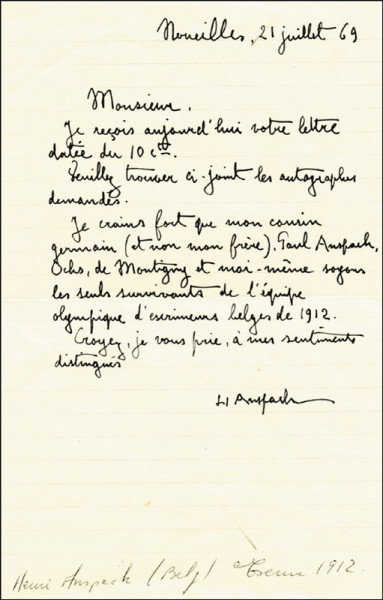 Noueilles, 21 juillet 69
Monsieur,
Je reçois aujourd'hui votre lettre
datée du 10 ct.
Veuillez trouver ci-joint les autographes
demandés.
Je crains fort que mon cousin
germain (et non mon frère), Paul Anspach,
Ochs, de Montigny et moi-même soyons
les seuls survivants de l'équipe
olympique d'escrimeurs belges de 1912.
Croyez, je vous prie, à mes sentiments
distingués
H Anspach
Henri Anspach (Belg) Escrime 1912.